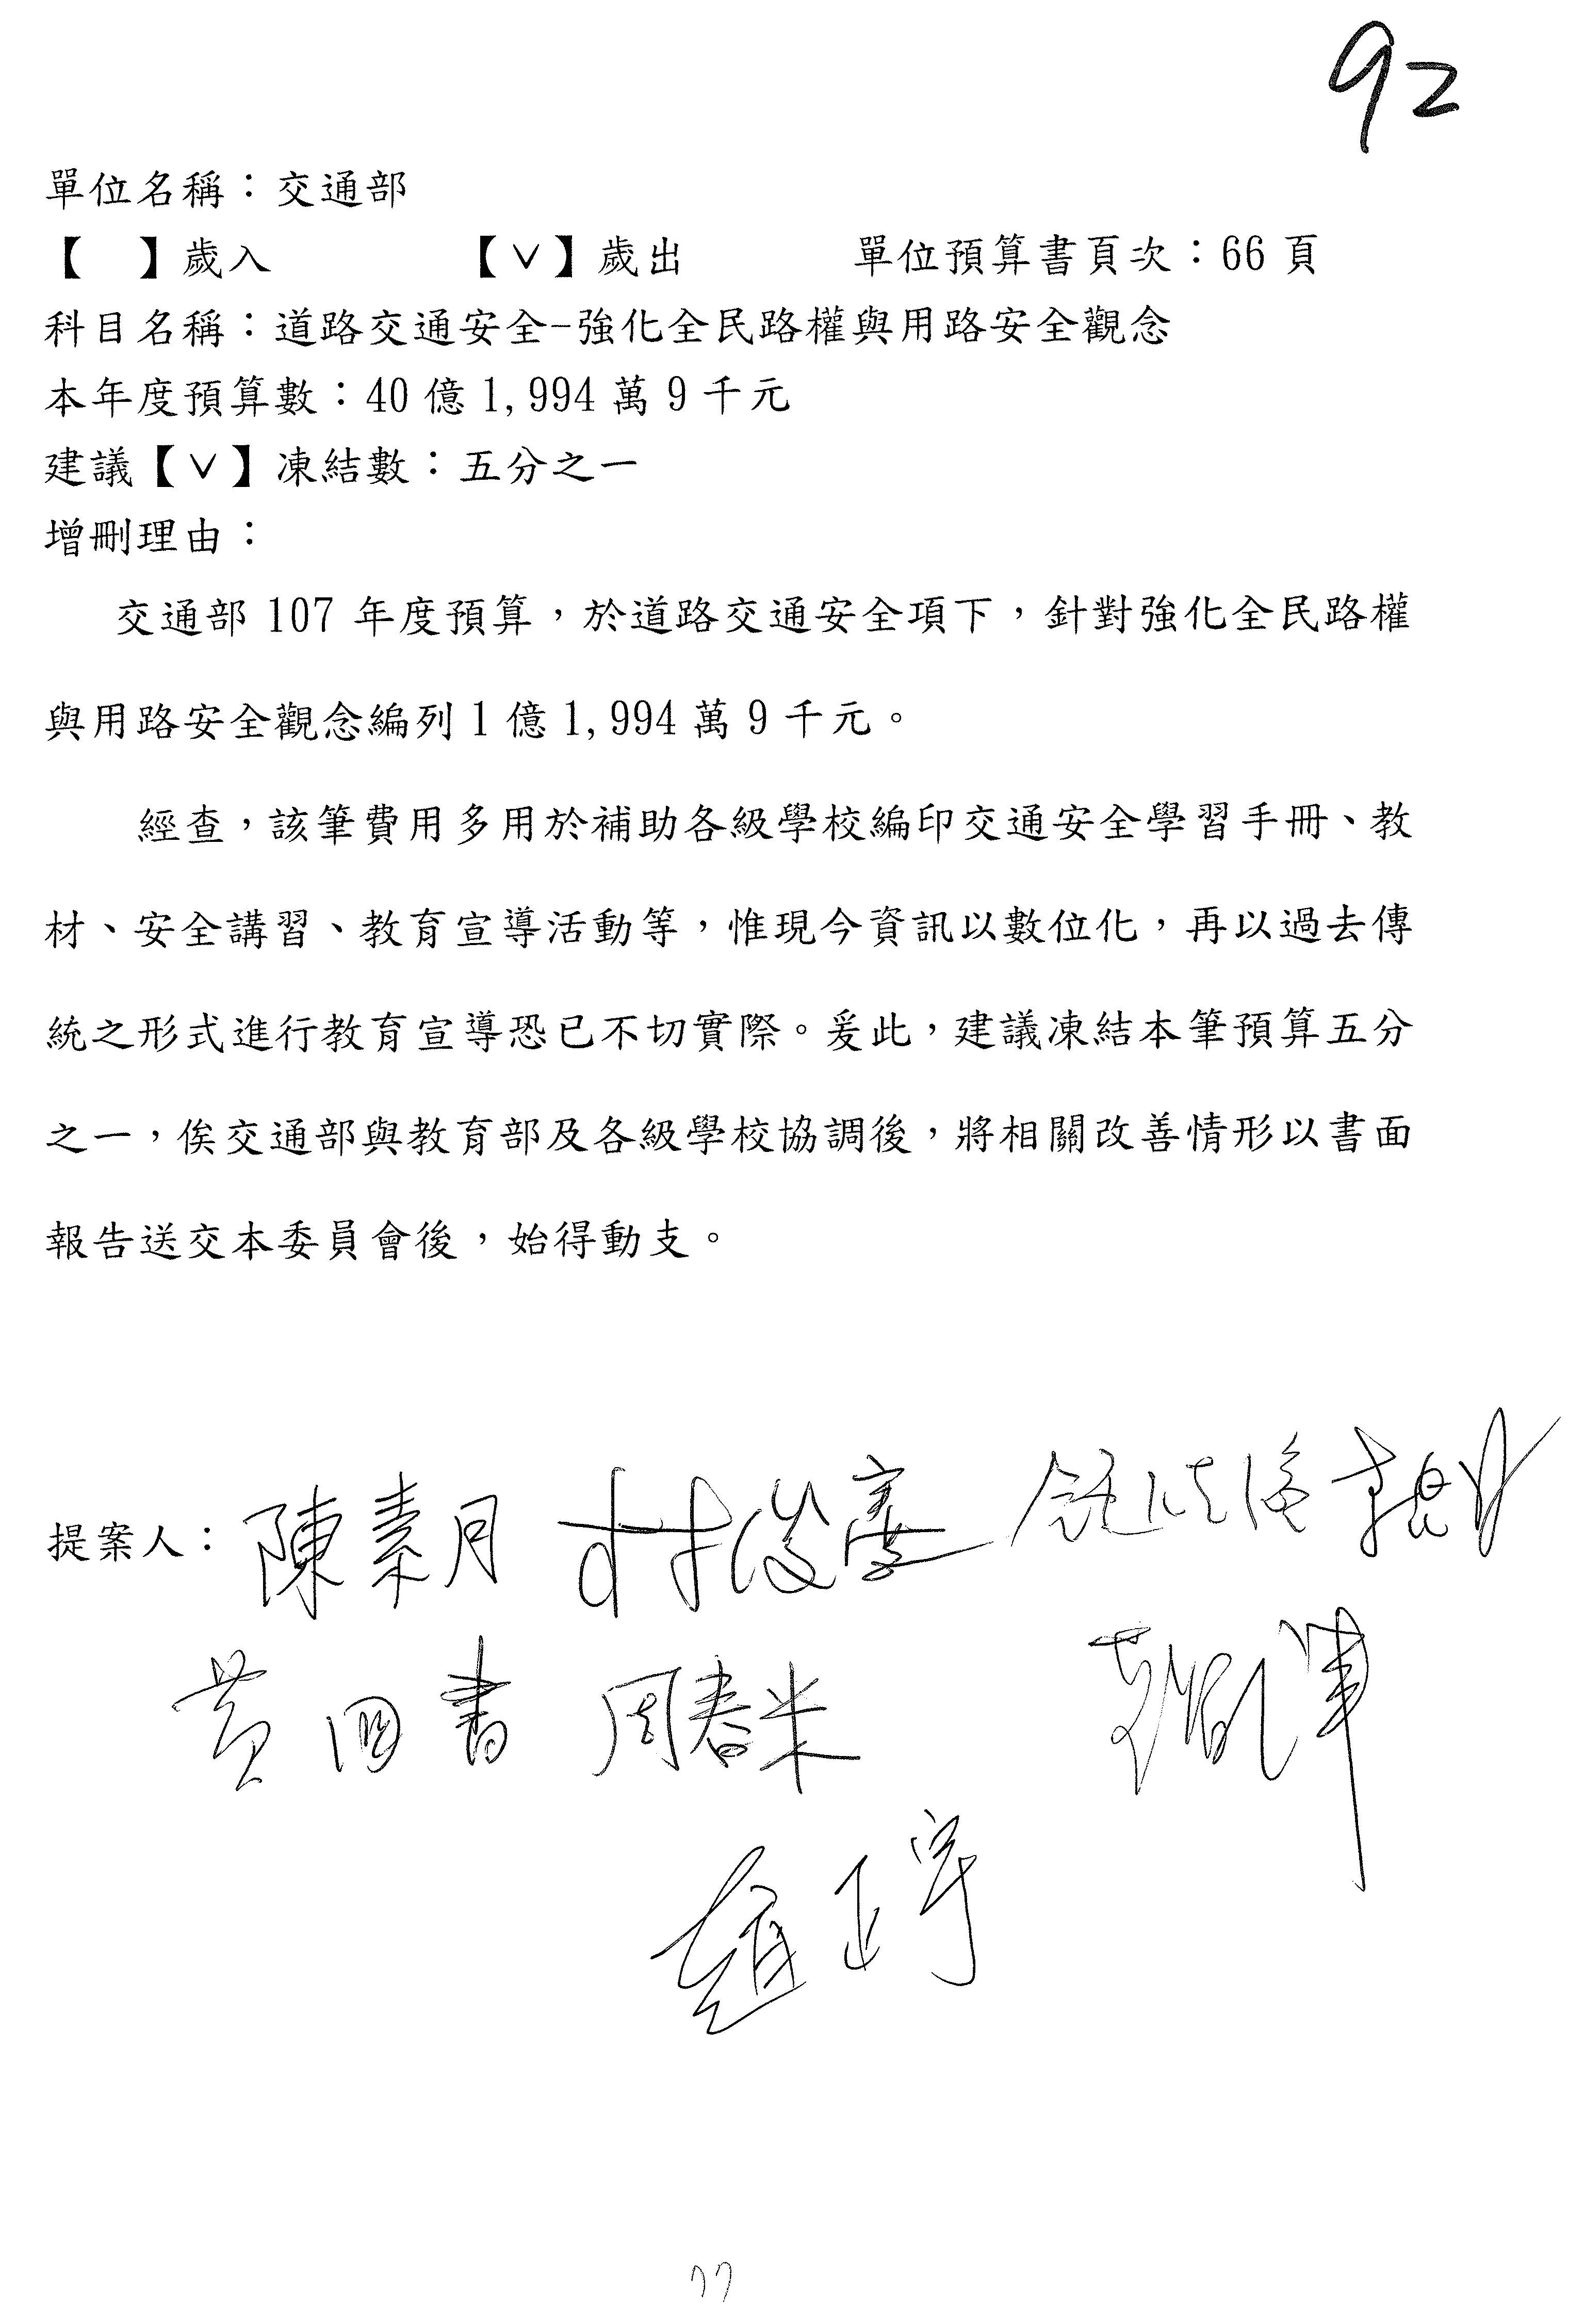 92
單位名稱：交通部
【　】歲入　　【∨】歲出　　單位預算書頁次：66 頁
科目名稱：道路交通安全-強化全民路權與用路安全觀念
本年度預算數：40 億 1,994 萬 9 千元
建議【∨】凍結數：五分之一
增刪理由：
交通部 107 年度預算，於道路交通安全項下，針對強化全民路權
與用路安全觀念編列 1 億 1,994 萬 9 千元。
經查，該筆費用多用於補助各級學校編印交通安全學習手冊、教
材、安全講習、教育宣導活動等，惟現今資訊以數位化，再以過去傳
統之形式進行教育宣導恐已不切實際。爰此，建議凍結本筆預算五分
之一，俟交通部與教育部及各級學校協調後，將相關改善情形以書面
報告送交本委員會後，始得動支。
提案人：陳素月 林俊憲
黃國書 周春米
趙正宇
77